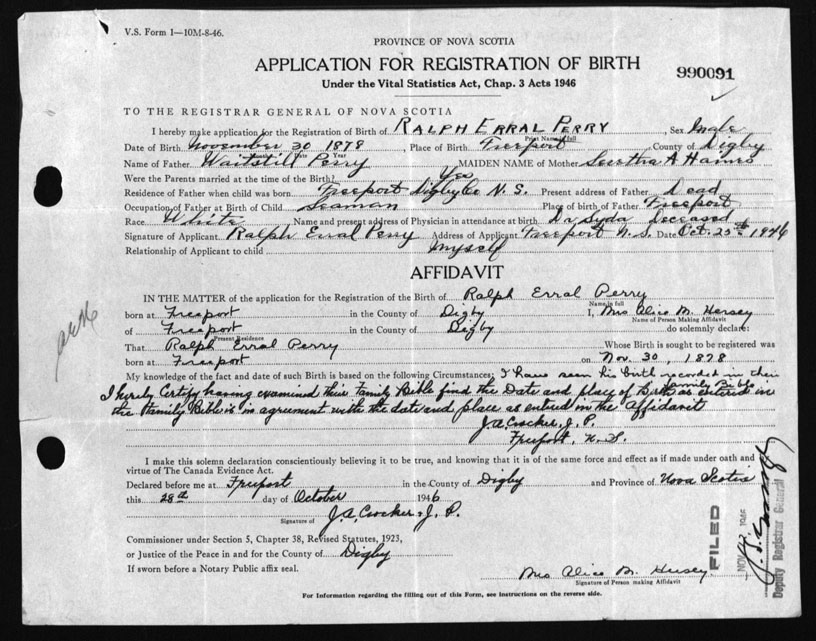 V.S. Form 1—10M-8-46.
PROVINCE OF NOVA SCOTIA
APPLICATION FOR REGISTRATION OF BIRTH
990091
Under the Vital Statistics Act, Chap. 3 Acts 1946
TO THE REGISTRAR GENERAL OF NOVA SCOTIA
I hereby make application for the Registration of Birth of RALPH ERRAL PERRY Sex Male
Print Name in full
Date of Birth November 30 1878, Place of Birth Freeport County of Digby
Month Day Year
Name of Father Waitstill Perry MAIDEN NAME of Mother A
Were the Parents married at the time of the Birth? Yes
Residence of Father when child was born Freeport Digby Co N. S. Present address of Father Dead
Occupation of Father at Birth of Child Seaman Place of birth of Father Freeport
Race White Name and present address of Physician in attendance at birth Dr deceased
Signature of Applicant Ralph Erral Perry Address of Applicant Freeport N.S. Date Oct. 25th 1946
Relationship of Applicant to child Myself
AFFIDAVIT
IN THE MATTER of the application for the Registration of the Birth of Ralph Erral Perry
Name in full
born at Freeport in the County of Digby I, Mrs Alice M. Hersey
Name of Person Making Affidavit
of Freeport in the County of Digby do solemnly declare:
Present Residence
That Ralph Erral Perry Whose Birth is sought to be registered was
born at Freeport on Nov. 30, 1878
My knowledge of the fact and date of such Birth is based on the following Circumstances: I have seen his birth recorded in their
family Bible
I hereby Certify having examined their Family Bible find the Date and place of Birth as entered in
the Family Bible is in agreement with the date and place as entered in the Affidavit
J.A. Crocker, J. P.
Freeport, N. S.
I make this solemn declaration conscientiously believing it to be true, and knowing that it is of the same force and effect as if made under oath and by
virtue of The Canada Evidence Act.
Declared before me at Freeport in the County of Digby and Province of Nova Scotia
this 28th day of October 1946
Signature of J. A. Crocker, J. P.
Commissioner under Section 5, Chapter 38, Revised Statutes, 1923,
or Justice of the Peace in and for the County of Digby
If sworn before a Notary Public affix seal.
Mrs Alice M. Hersey
Signature of Person making Affidavit
For Information regarding the filling out of this Form, see instructions on the reverse side.
FILED
NOV 1946
Deputy Registrar General